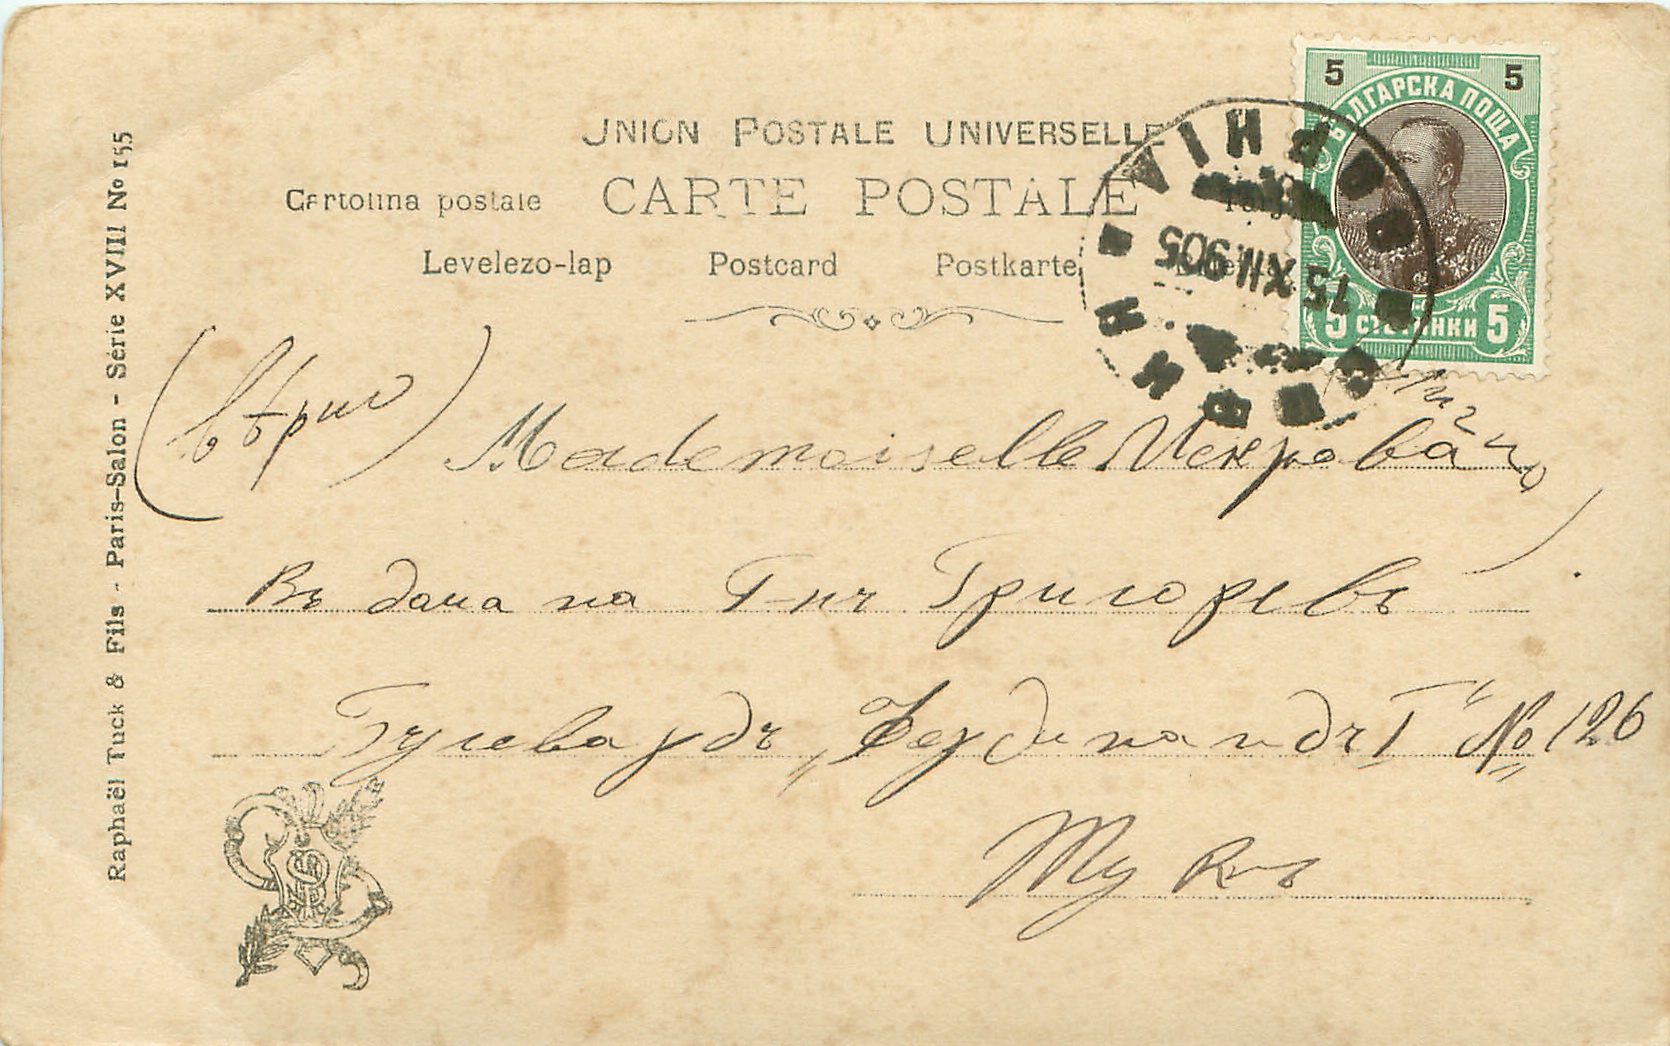 Raphaël Tuck & Fils - Paris-Salon - Série XVIII No 155
UNION POSTALE UNIVERSELLE
Cartolina postale CARTE POSTALE
Levelezo-lap Postcard Postkarte
5 5
БЪЛГАРСКА ПОЩА
5 СТОТИНКИ 5
СОФИЯ
15.XII.905
Mademoiselle Искрова
Въ дома на Г-нъ Григоревъ
Булевардъ „Фердинандъ I“ № 126
Тукъ